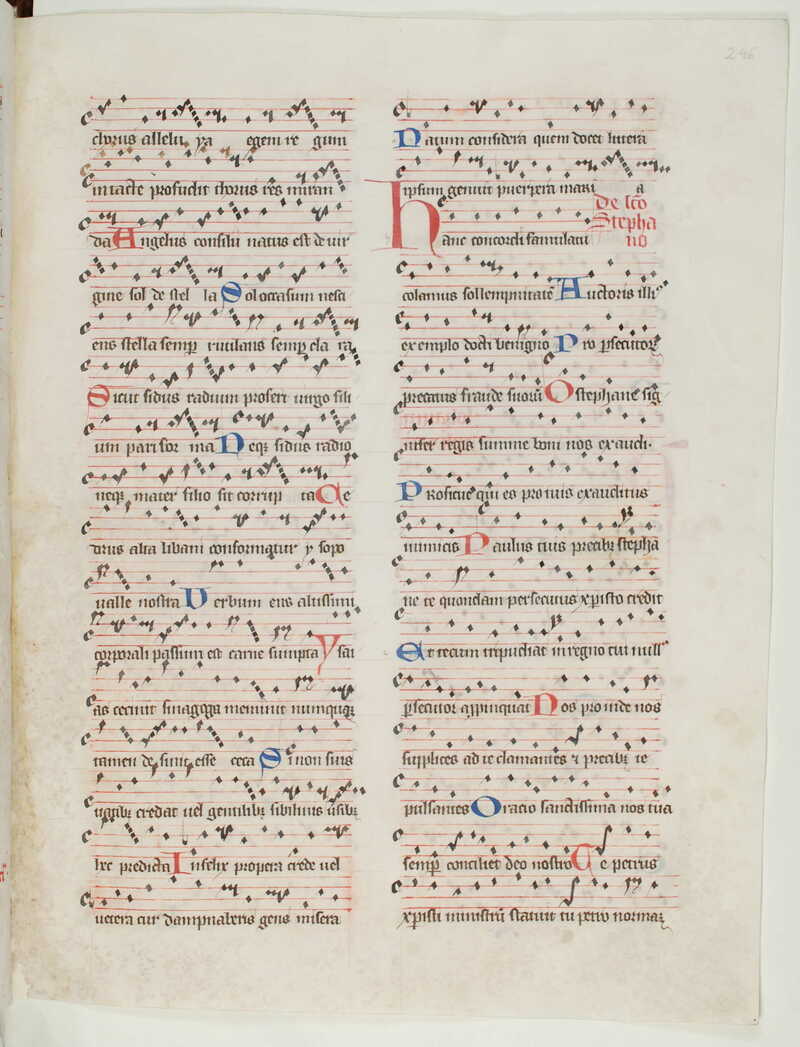 246
chorus alleluya egem re gum
intacte profudit chorus res miran
da Angelus consilii natus est de uir
gine sol de stella Sol occasum nesci
ens stella semper rutilans semper cla ra
Sicut sidus radium profert uirgo fili
um pari for ma Neque sidus radio
neque mater filio fit corrup ta Ce
drus alta libani conformatur ysopo
ualle nostra Verbum ens altissimi
corporali passum est carne sumpta Ysai
as cecinit sinagoga meminit numquam
tamen desinit esse ceca Si non suis
uatibus credat uel gentilibus sibilinis uersibus
hec predicta Infelix propera crede uel
uetera cur dampnaberis gens misera
Natum considera quem docet littera
ipsum genuit puerpera maxi a
De sco
Stepha
no
Hanc concordi famulatu
colamus sollempnitate Auctoris illi
exemplo docti benigno Pro persecutor
precatus fraude suorum O stephane sig
nifer regis summe boni nos exaudi.
Proficue qui es pro tuis exauditus
inimicis Paulus tuis precibus stepha
ne te quondam persecutus xpisto credit
Et tecum tripudiat in regno cui null
persecutor appinquat Nos proinde nos
supplices ad te clamantes et precibus te
pulsantes Oracio sanctissima nos tua
semper conciliet deo nostro Te petrus
xpisti ministrum statuit tu petro normam